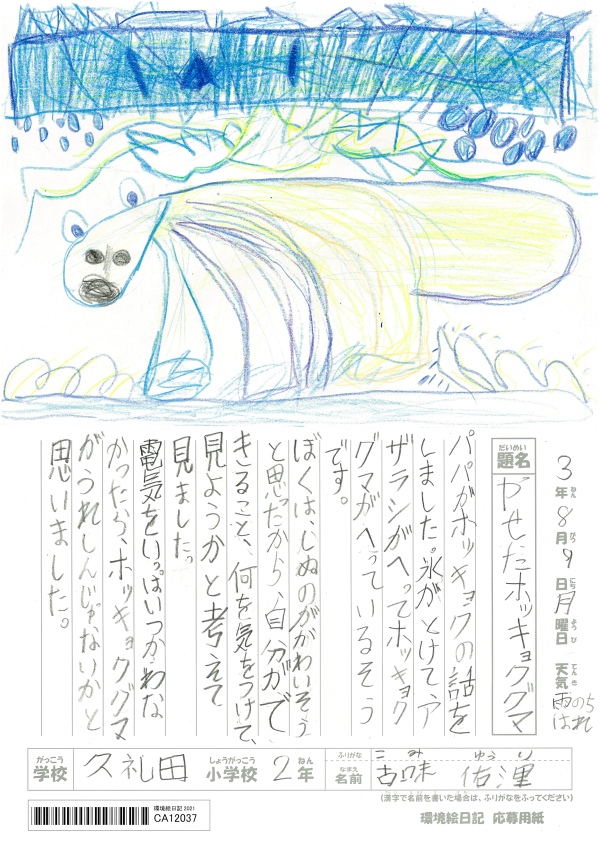 3年8月9日月曜日 天気 雨のちはれ
ねん がつ にち ようび てんき
だいめい
題名 やせたホッキョクグマ
パパがホッキョクの話を
しました。氷がとけて、ア
ザラシがへってホッキョク
グマがへっているそう
です。
ぼくは、しぬのががわいそう
と思ったから、自分がで
きること、何を気をつけて、
見ようかと考えて
見ました。
電気をいっぱいつかわな
かったら、ホッキョクグマ
がうれしんじゃないかと
思いました。
がっこう しょうがっこう ねん ふりがな こみ ゆうり
学校 久礼田 小学校 2年 なまえ 名前 古味 佑浬
(漢字で名前を書いた場合は、ふりがなをふってください)
環境絵日記 2021
CA12037
環境絵日記 応募用紙